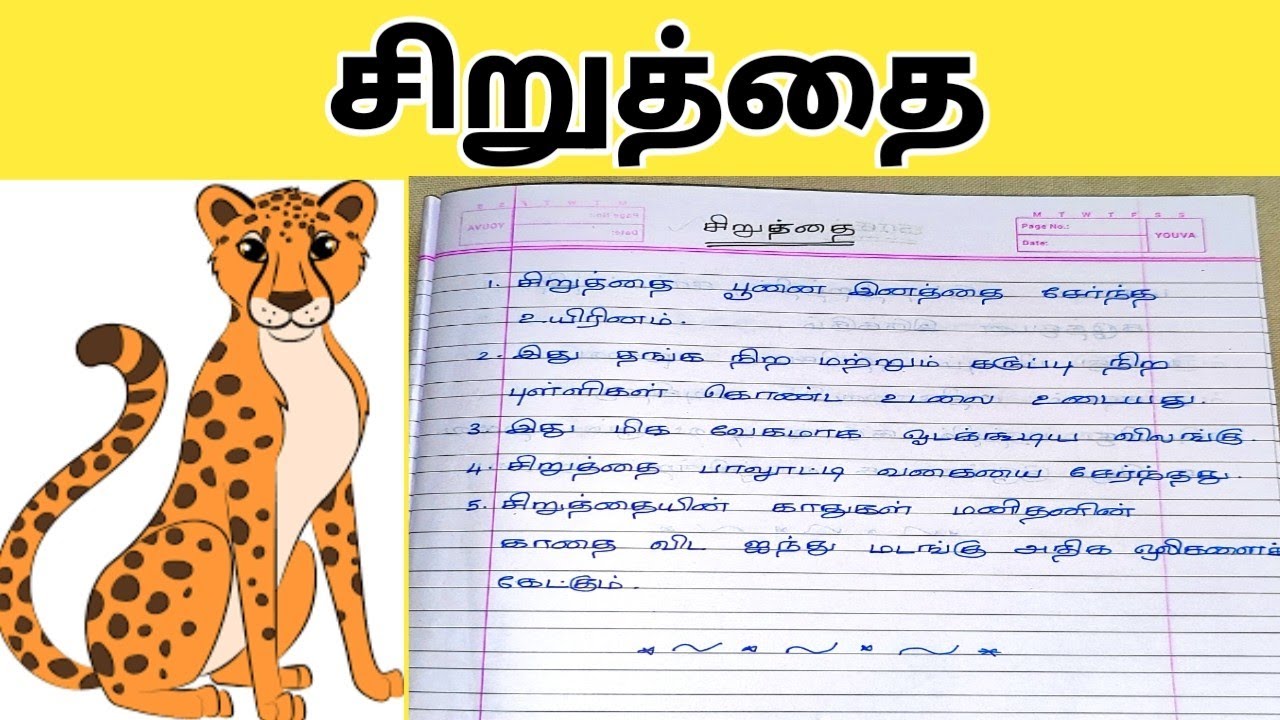 சிறுத்தை
M T W T F S S
Page No.:
Date:
YOUVA
சிறுத்தை
1. சிறுத்தை பூனை இனத்தை சேர்ந்த
உயிரினம்.
2. இது தங்க நிற மற்றும் கருப்பு நிற
புள்ளிகள் கொண்ட உடலை உடையது.
3. இது மிக வேகமாக ஓடக்கூடிய விலங்கு.
4. சிறுத்தை பாலூட்டி வகையை சேர்ந்தது.
5. சிறுத்தையின் காதுகள் மனிதனின்
காதை விட ஐந்து மடங்கு அதிக ஒலிகளைக்
கேட்கும்.